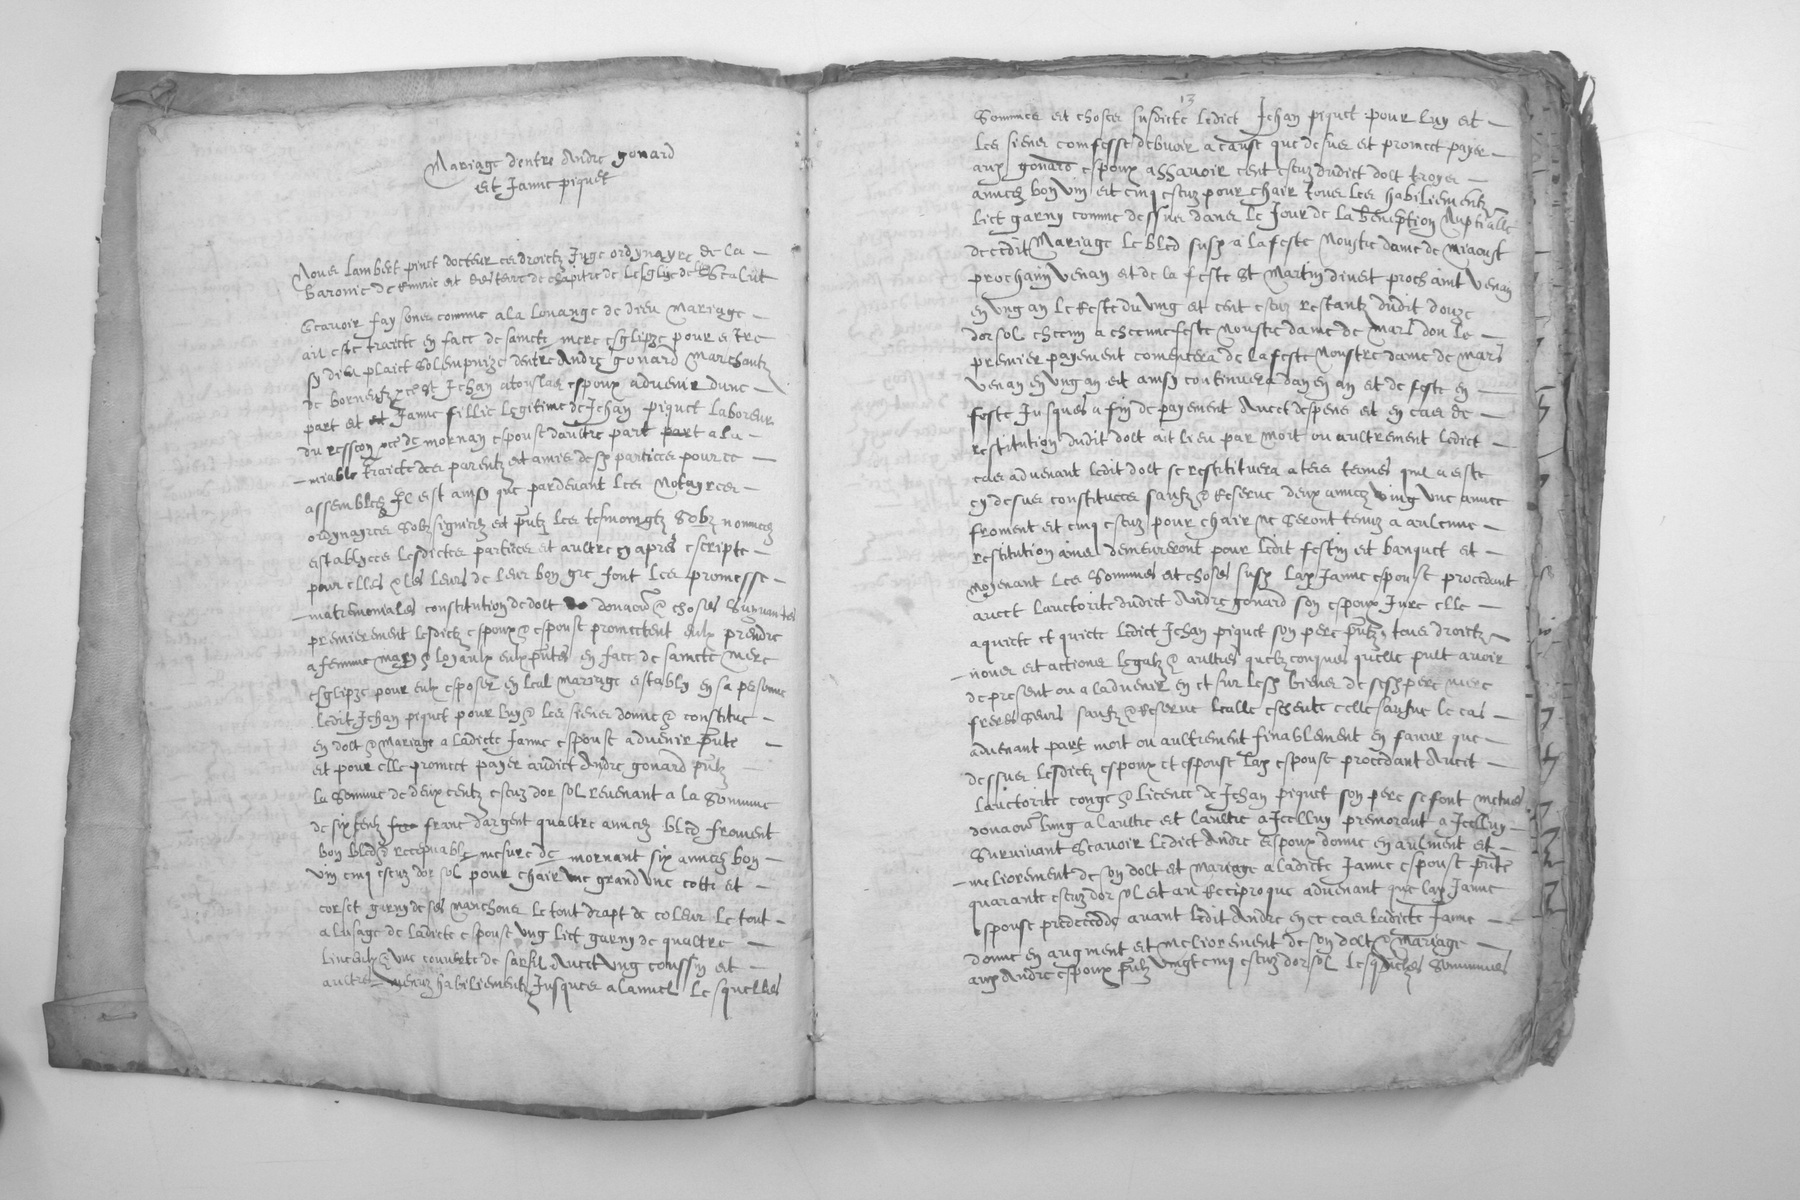 Mariage dentre Andre gonard
et Janne piquet
Nous Lambert pinet docteur es droictz Juge ordynayre de la
baronie de et terre de chapitre de lesglize de Salut
Scavoir faysons comme a la louange de dieu Mariage
ait este traicte en face de saincte mere esglize pour estre
sy dieu plaict solempnize dentre Andre gonard Marchantz
de bornentz st Jehan espoux advenir dune
part et et Janne fillie legitime de Jehan piquet laboreur
du de mornan espouse daultre part part a la
miable traicte des parentz et amis desp parties pour ce
assemblez Il est ainsy que pardevant les Notayres
ordynayres Sobzsignetz et putz les tesmoingtz Sobz nommez
establyes lesdictes parties et aultre cy apres escripte
pour elles & les leurs de leur bon gre font les promesse
matremoniales constitution de dolt donaon & choses Suyvantes
premierement lesdictz espoux & espouse promectent eulx prendre
a femme mary & loyaulx eulx putes en face de saincte Mere
esglipze pour eulx esposer en leal mariage estably en sa persone
ledit Jehan piquet pour luy & les siens donne & constitue
en dolt & Mariage a ladicte Janne espouse advenir pute
et pour elle promect payer audict Andre gonard putz
la Somme de deux centz escuz dor sol revenant a la Somme
de six centz franc dargent quattre annees bled froment
bon bled & recepvable mesure de mornant six annees bon
vin cinq escuz dor sol pour chair une grand une cotte et
corset garny de ses manchons le tout drapt de coleur le tout
a lusage de ladicte espouse ung lict garny de quattre
linceulx & une couverte de sarfil Avect ung coussin et
aultres menuz habiliementz Jusques a lanuel lesquelles
13
Sommes et choses susdicte ledict Jehan piquet pour luy et
les siens comfesse debvoir a cause que desus et promect payer
aux gonard espoux assavoir cent escuz dudict dolt troyes
annees bon vin et cinq escuz pour chair tous les habiliementz
lict garny comme dessus dans le Jour de la benediption Nuptialle
de cedit Mariage le bled susp a la feste Nostre dame de Miaoust
prochain venan et de la feste st Martin divet prochaint venan
en ung an le Reste du ving et cent escuz restantz dudit douze
dor sol checun a checunne feste Nostre dame de Mars don le
premier payement comencera de la feste Nostre dame de Mars
venan en ung an et ainsy continuera dan en an et de feste en
feste Jusques a fin de payement Avect despens et en cas de
restitution dudit dolt ait lieu par mort ou aultrement ledict
cas advenant ledit dolt se restituera a tels termes quil a este
cy desus constituees saufz & Reserve deux annees ving une annee
froment et cinq escuz pour chair ne seront tenuz a aulcune
restitution ains demeureront pour ledit festin et banquet et
moyenant les Sommes et choses susp lap Janne espouse procedant
avect lauctorite dudict Andre gonard son espoux Jure elle
aquicte et quicte ledict Jehan piquet son pere putz tous droictz
noms et actions legatz & aultres quelzconques quelle pult avoir
de present ou a ladvenir en et sur lesp biens de sesp pere mere
freres seurs saufz & Reserve lealle escheute celle saufue le cas
advenant part mort ou aultrement finablement en faveur que
dessus lesdictz espoux et espouse lap espouse procedant Avect
lauctorite conge & licence de Jehan piquet son pere se font metues
donaon lung a laultre et laultre a Icelluy premorant a Icelluy
survivant Scavoir ledict Andre espoux donne en aulment et
meliorement de son dolt et Mariage a ladicte Janne espouse pute
quarante escuz dor sol et au Reciproque advenant que lap Janne
spouse predecede avant ledit Andre en ce cas ladicte Janne
donne en augment et meliorement de son dolt & mariage
aup Andre espoux putz vingt cinq escuz dor sol lesquelles Sommes